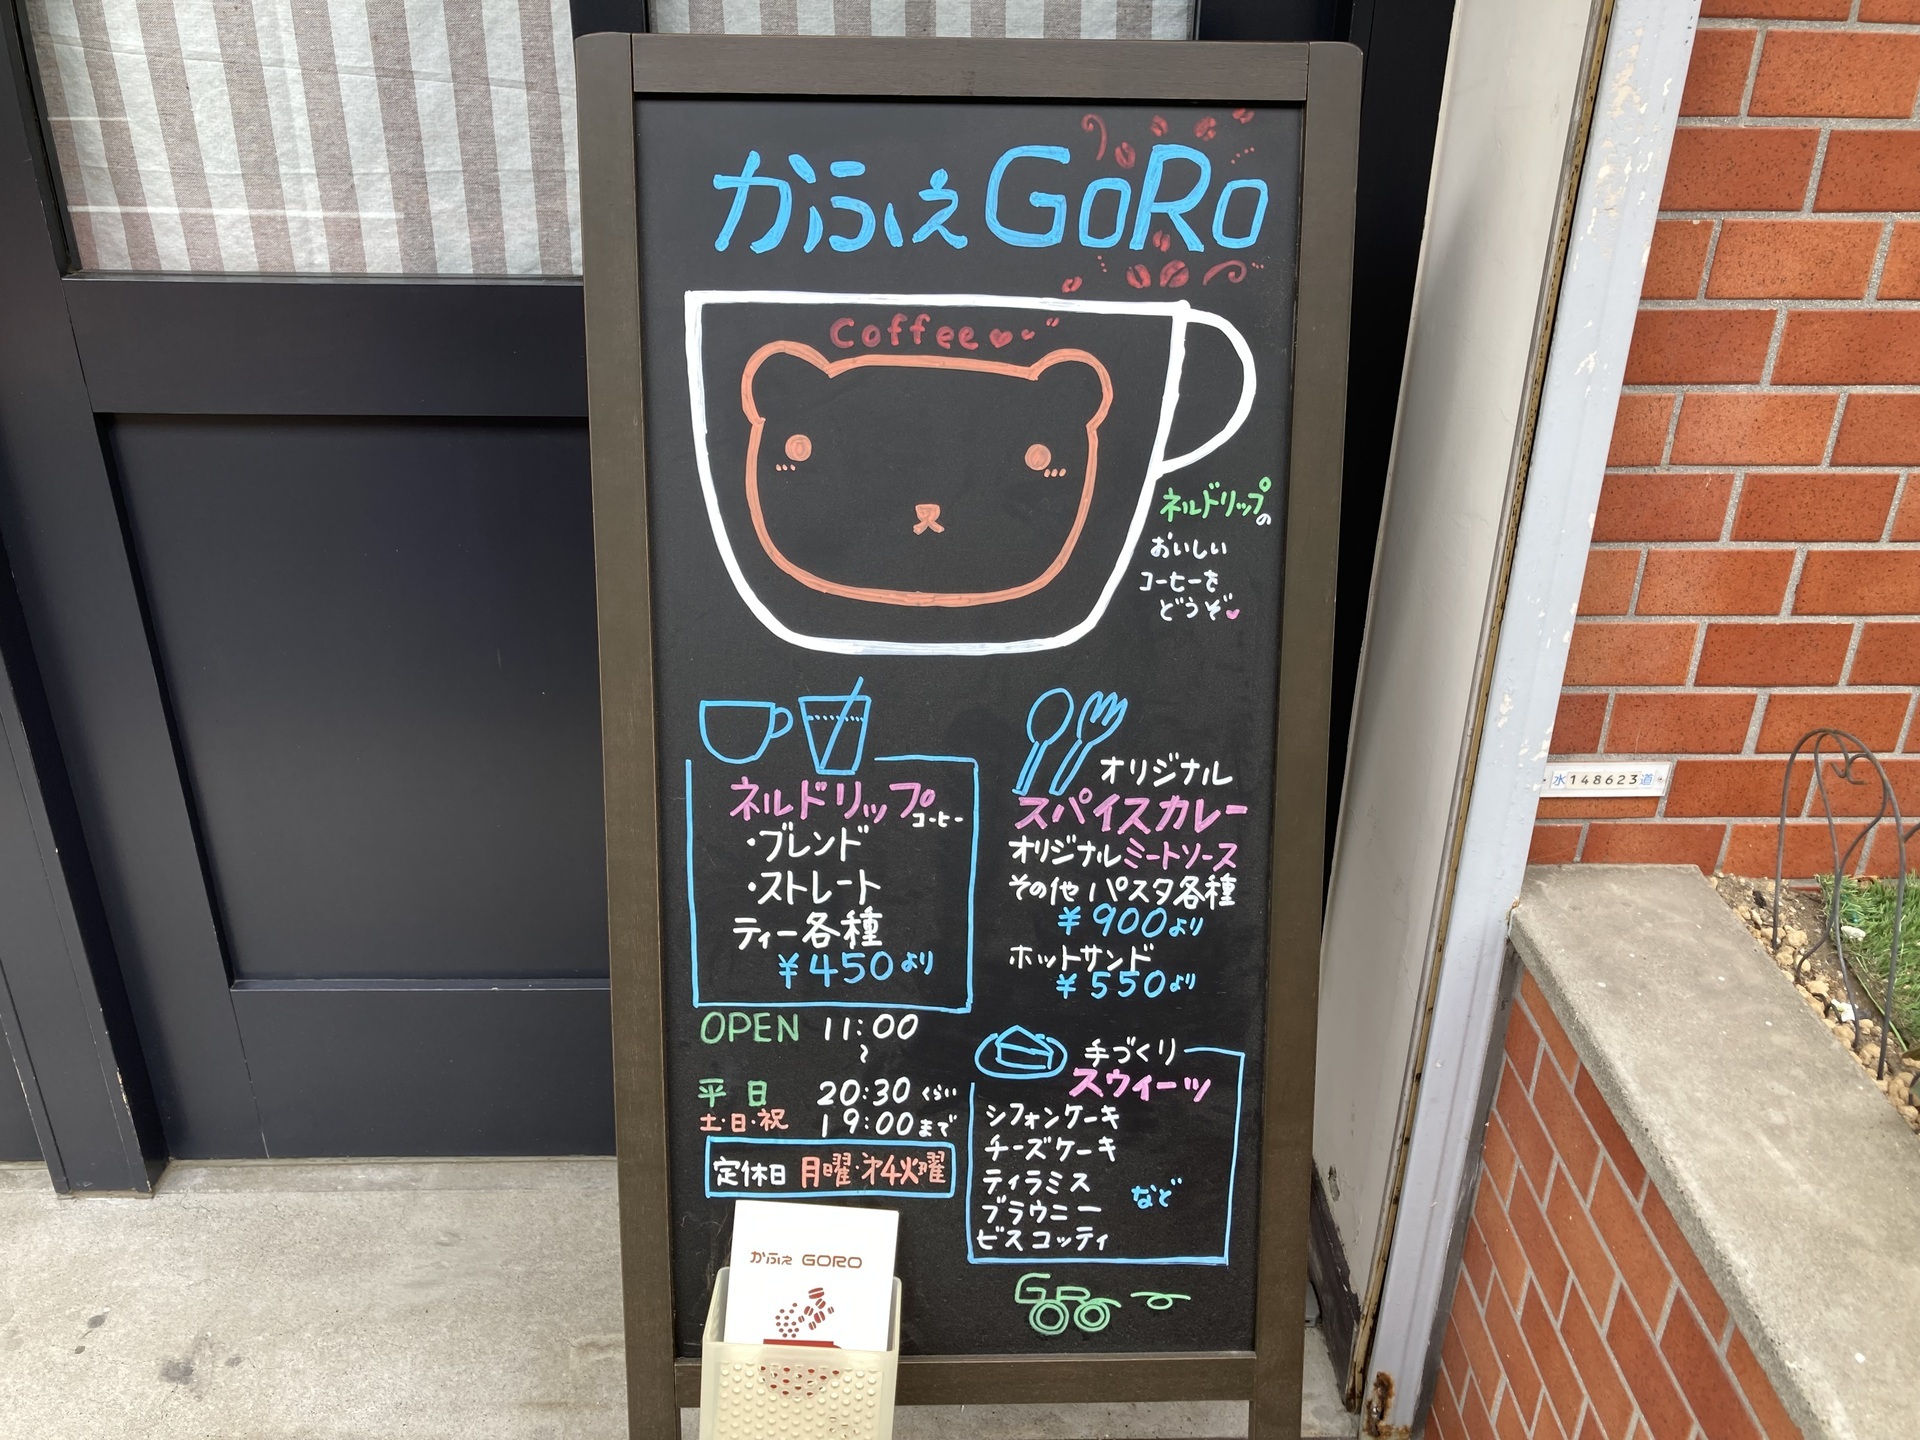 かふぇ GORO
Coffee
ネルドリップの
おいしい
コーヒーを
どうぞ
ネルドリップコーヒー
・ブレンド
・ストレート
ティー各種
¥450より
オリジナル
スパイスカレー
オリジナルミートソース
その他 パスタ各種
¥900より
ホットサンド
¥550より
OPEN 11:00
〜
平日 20:30くらい
土・日・祝 19:00まで
定休日 月曜・第4火曜
手づくり
スウィーツ
シフォンケーキ
チーズケーキ
ティラミス
ブラウニー
ビスコッティ
など
GoRo
かふぇ GORO
水148623道